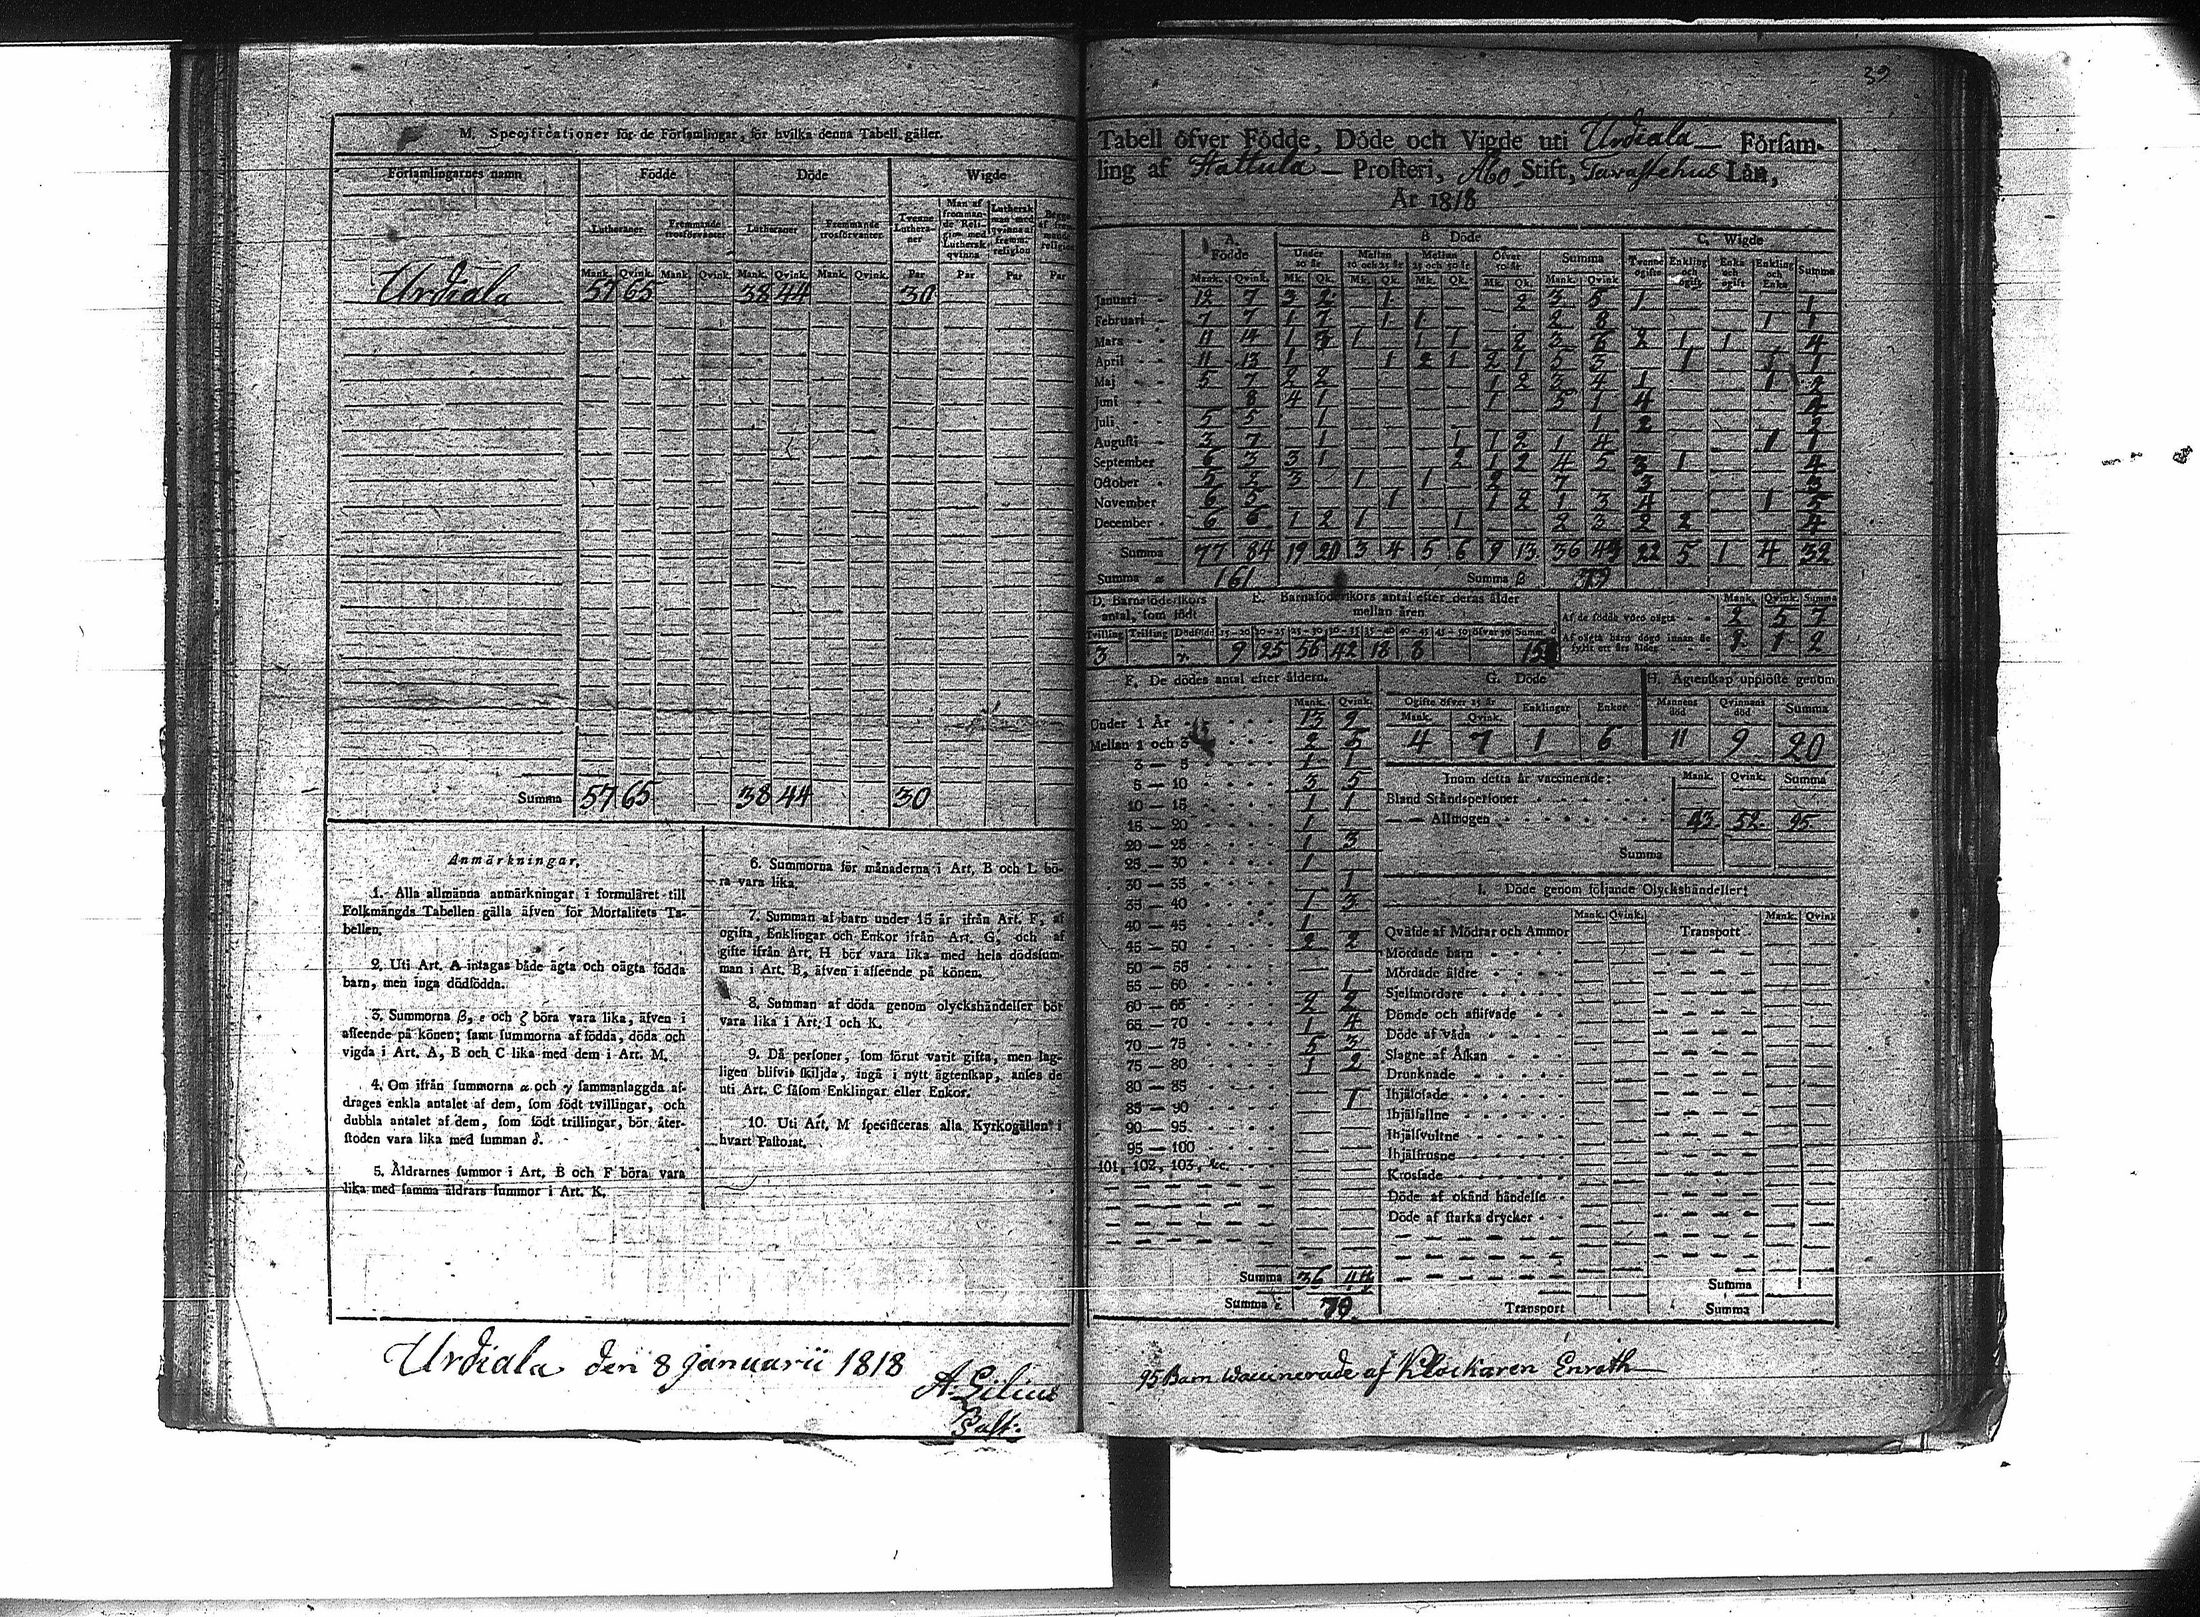 M. Specificationer för de Församlingar, för hvilka denna Tabell gäller.
Församlingarnes namn Födde Döde Wigde
Lutheraner Fremmande trosförvanter Lutheraner Fremmande trosförvanter
Mank. Qvink. Mank. Qvink. Mank. Qvink. Mank. Qvink. Par Par Par Par
Urdiala 57 65 38 44 30
Summa 57 65 38 44 30
Anmärkningar.
1. Alla allmänna anmärkningar i formuläret till
Folkmängds Tabellen gälla äfven för Mortalitets Ta-
bellen.
2. Uti Art. A intagas både ägta och oägta födda
barn, men inga dödfödda.
3. Summorna β, ε och ζ böra vara lika, äfven i
afseende på könen; samt summorna af födda, döda och
vigda i Art. A, B och C lika med dem i Art. M.
4. Om ifrån summorna α och γ sammanlaggda af-
drages enkla antalet af dem, som födt tvillingar, och
dubbla antalet af dem, som födt trillingar, bör åter-
stoden vara lika med summan δ.
5. Åldrarnes summor i Art. B och F böra vara
lika med samma åldrars summor i Art. K.
6. Summorna för månaderna i Art. B och L bö-
ra vara lika.
7. Summan af barn under 15 år ifrån Art. F, af
ogifta, Enklingar och Enkor ifrån Art. G, och af
gifte ifrån Art. H bör vara lika med hela dödssum-
man i Art. B, äfven i afseende på könen.
8. Summan af döda genom olyckshändelser bör
vara lika i Art. I och K.
9. Då personer, som förut varit gifta, men lag-
ligen blifvit skiljda, ingå i nytt ägtenskap, anses de
uti Art. C såsom Enklingar eller Enkor.
10. Uti Art. M specificeras alla Kyrkogällen i
hvart Pastorat.
Urdiala den 8 Januarii 1818
A. Lilius
39
Tabell öfver Födde, Döde och Vigde uti Urdiala Församling
af Hattula Prosteri, Åbo Stift, Tavastehus Län,
År 1818
A. Födde B Döde C. Wigde
Under 10 år Mellan 10 och 25 år Mellan 25 och 50 år Öfver 50 år Summa Tvenne ogifte Enkling och ogift Enka och ogift Enkling och Enka Summa
Mank. Qvink. Mk. Qk. Mk. Qk. Mk. Qk. Mk. Qk. Mank. Qvink.
Januari 12 7 3 2 1 2 3 5 1 1
Februari 7 7 1 7 1 1 2 8 1 1
Mars 11 14 1 1 1 1 2 3 2 1 1 4
April 11 13 1 1 2 1 2 1 5 3 1 1
Maj 5 7 2 2 1 2 3 4 1 1 2
Juni 8 4 1 1 5 1 4 4
Juli 5 5 1 1 2 2
Augusti 3 7 1 1 1 2 1 4 1 1
September 6 3 3 1 2 1 2 4 5 3 1 4
October 3 1 1 2 7 3 3
November 6 5 1 1 2 1 3 4 1 5
December 6 6 1 2 1 1 2 3 2 2 4
Summa 77 84 19 20 3 4 5 6 9 13 36 43 22 5 1 4 32
Summa α 161 Summa β 79
D. Barnsöderskors antal, som födt E. Barnaföderskors antal efter deras ålder mellan åren Mank. Qvink. Summa
Af de födde voro oägta 2 5 7
Tvilling Trilling Dödfödd 15—20 20—25 25—30 30—35 35—40 40—45 45—50 öfver 50 Summa
Af oägta barn dogo innan de fyllt ett års ålder 1 2
3 9 25 56 42 18 8
F. De dödes antal efter åldern. G. Döde H. Ägtenskap upplöste genom
Mank. Qvink. Ogifte öfver 15 år Enklingar Enkor Mannens död Qvinnans död Summa
Under 1 År 13 9
Mank. Qvink.
4 7 1 6 11 9 20
Mellan 1 och 3 2 5
3 — 5 1 1
5 — 10 3 5
10 — 15 1 1
15 — 20 1
20 — 25 1 3
25 — 30 1
30 — 35 1
35 — 40 1 3
40 — 45 1
45 — 50 2 2
50 — 55
55 — 60 1
60 — 65 2 2
65 — 70 1 4
70 — 75 5 3
75 — 80 1 2
80 — 85
85 — 90 1
90 — 95
95 — 100
101, 102, 103, &c.
Summa 36
Summa 79
Inom detta år vaccinerade: Mank. Qvink. Summa
Bland Ståndspersoner
— — Allmogen 43 52 95
Summa
I. Döde genom följande Olyckshändelser:
Mank. Qvink. Mank. Qvink
Qväfde af Mödrar och Ammor Transport
Mördade barn
Mördade äldre
Sjelfmördare
Dömde och aflifvade
Döde af våda
Slagne af Åskan
Drunknade
Ihjälfrusne
Krossade
Döde af okänd händelse
Döde af starka drycker
Summa
Transport Summa
95 Barn Waccinerade af Klockaren Enroth